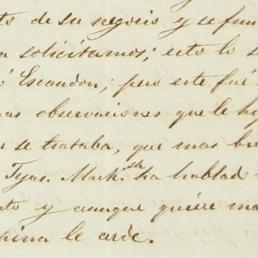 to de su negocio y se fun
a solicitamos; esto lo s
ó Escandon; pero este fué
nas observaciones que le hi
n se trataba, que mas bie
Tyas. Mack.sa ha hablad
nto y aunque quiere ma
pina le arde.